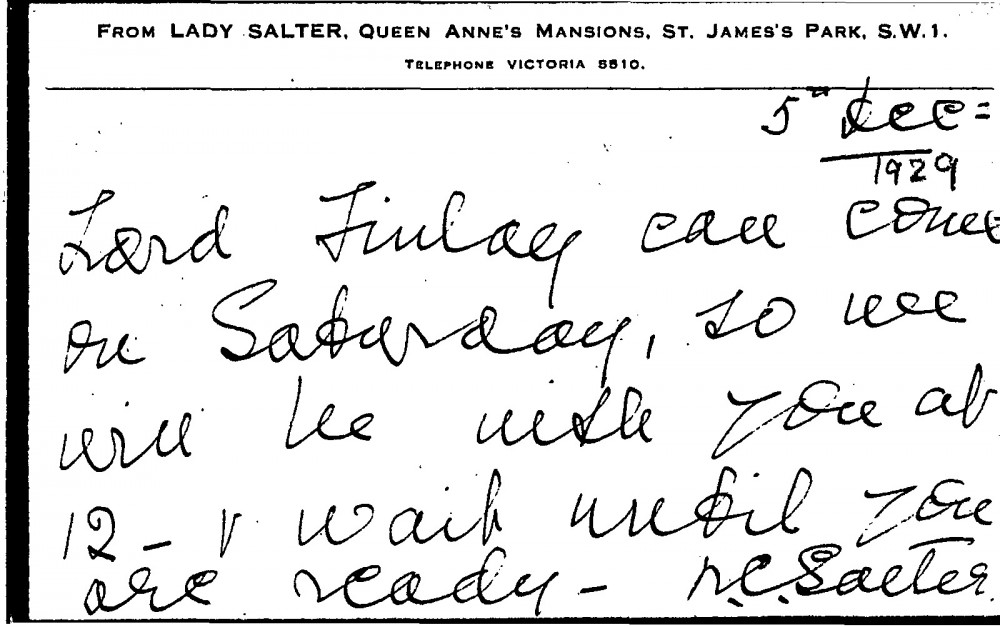 FROM LADY SALTER, QUEEN ANNE'S MANSIONS, ST. JAMES'S PARK, S.W.1.
TELEPHONE VICTORIA 5510.
5th Dec=
1929
Lord Finlay can come
on Saturday, so we
will be with you at
12 - & wait until you
are ready - Salter